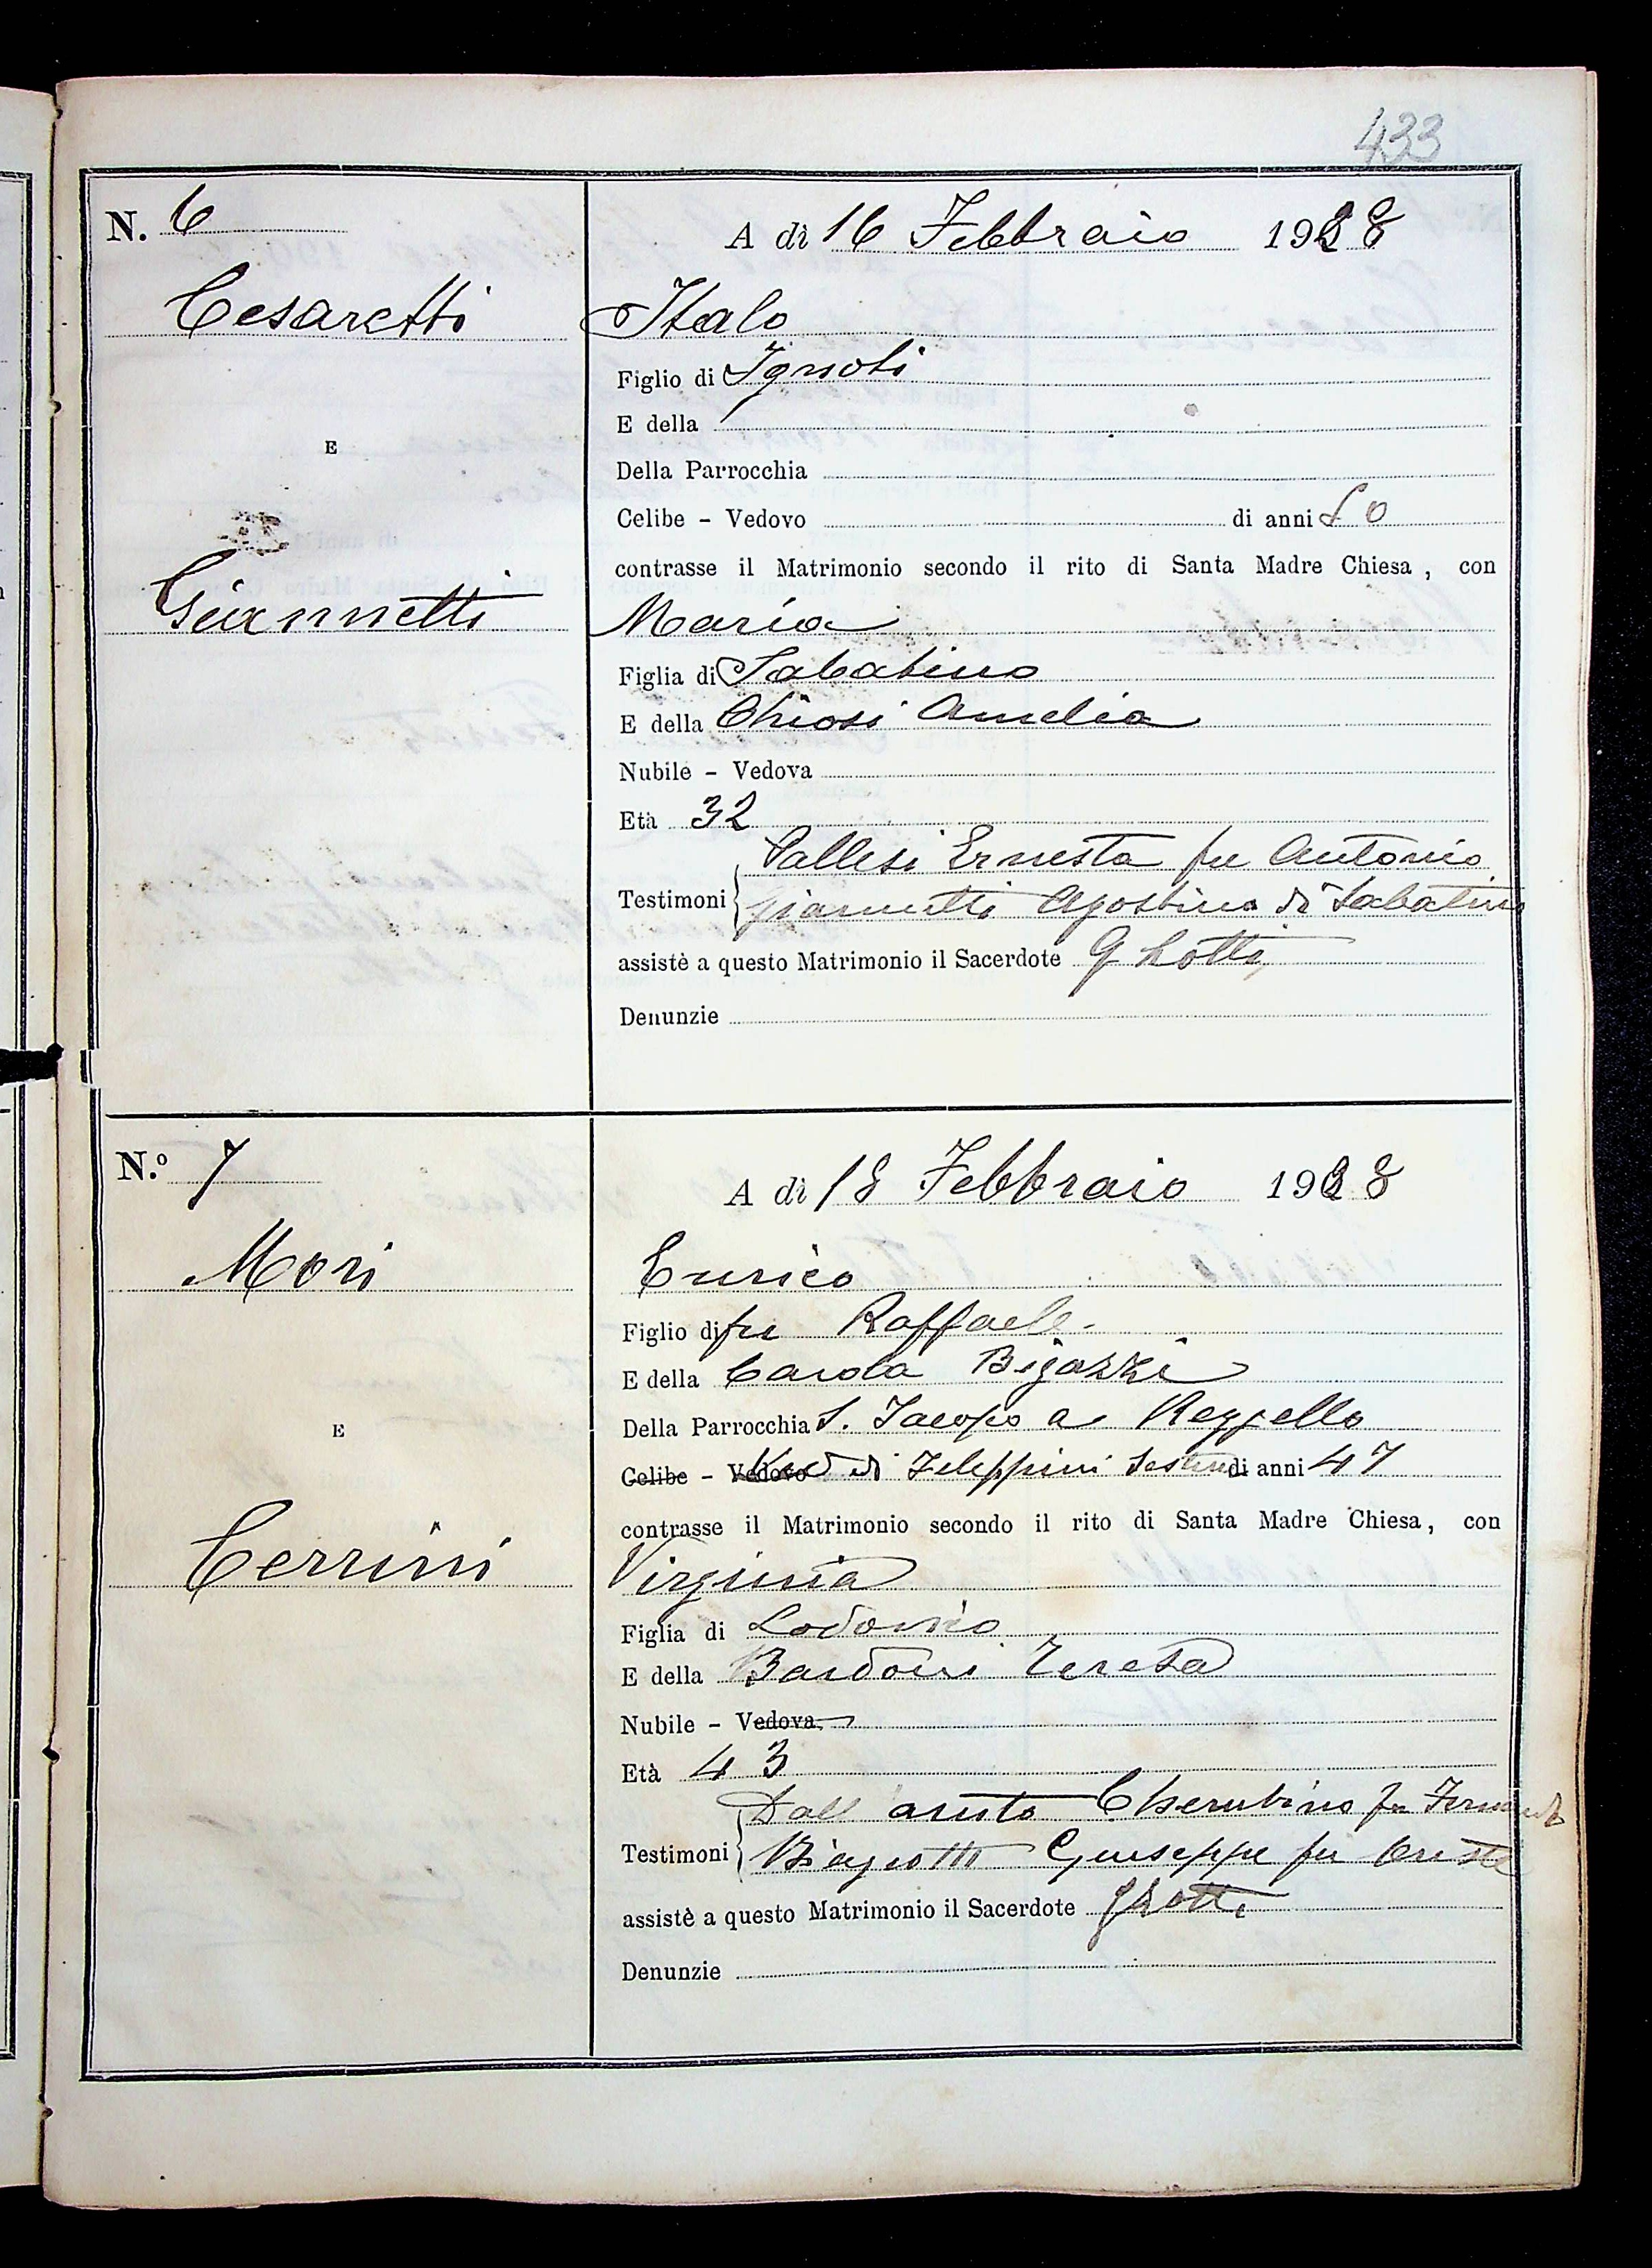 433
N. 6
A dì 16 Febbraio 1928
Cesaretti
Italo
Figlio di Ignoti
E della
E
Della Parrocchia
Celibe - Vedovo di anni 50
contrasse il Matrimonio secondo il rito di Santa Madre Chiesa, con
Giannetti
Maria
Figlia di Sabatino
E della Chiosi Amelia
Nubile - Vedova
Età 32
Vallesi Ernesta fu Antonio
Testimoni Giannetti Agostino di Sabatino
assistè a questo Matrimonio il Sacerdote G Lotti
Denunzie
N.o 7
A dì 18 Febbraio 1928
Mori
Enrico
Figlio di fu Raffaele
E della Carola Bigazzi
Della Parrocchia S. Jacopo a Reggello
E
Celibe - Vedovo Ved di Filippini di anni 47
contrasse il Matrimonio secondo il rito di Santa Madre Chiesa, con
Cerrini
Virginia
Figlia di Lodovico
E della Bardoni Teresa
Nubile - Vedova
Età 43
Cherubino fu
Testimoni Biagiotti Giuseppe fu Oreste
assistè a questo Matrimonio il Sacerdote G Lotti
Denunzie